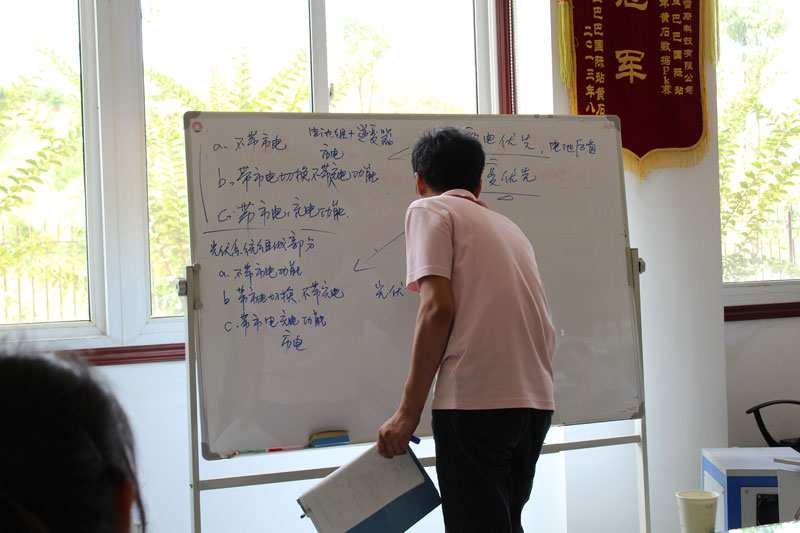 a. 不带市电
电池组+逆变器
市电
电优先,电池后备
b、带市电切换不带充电功能
优先
c. 带市电、充电功能.
光伏系统组成部分
a. 不带市电功能
b 带市电切换、不带充电
光伏
c. 带市电充电功能
市电
冠军
科技有限公司
巴巴国际站
年黄石数据PK赛
巴巴国际站黄石
二〇一三年八